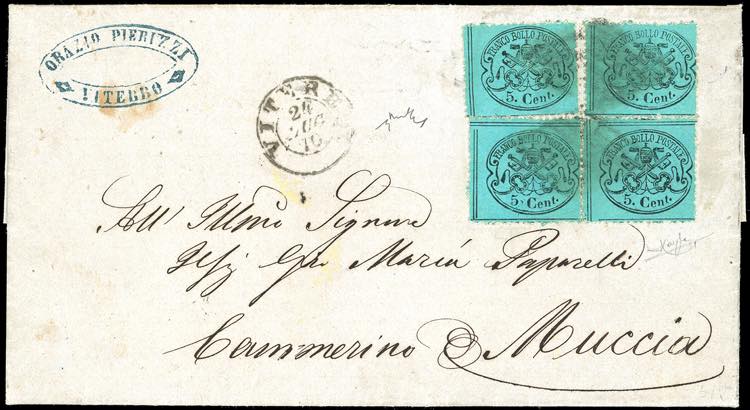 ORAZIO PIERIZZI
VITERBO
VITERBO
24
LUG
70
FRANCO BOLLO POSTALE
5. Cent.
FRANCO BOLLO POSTALE
5. Cent.
FRANCO BOLLO POSTALE
5. Cent.
FRANCO BOLLO POSTALE
5. Cent.
All' Illmo Signore
Gio Maria Paparelli
Cammerino Muccia